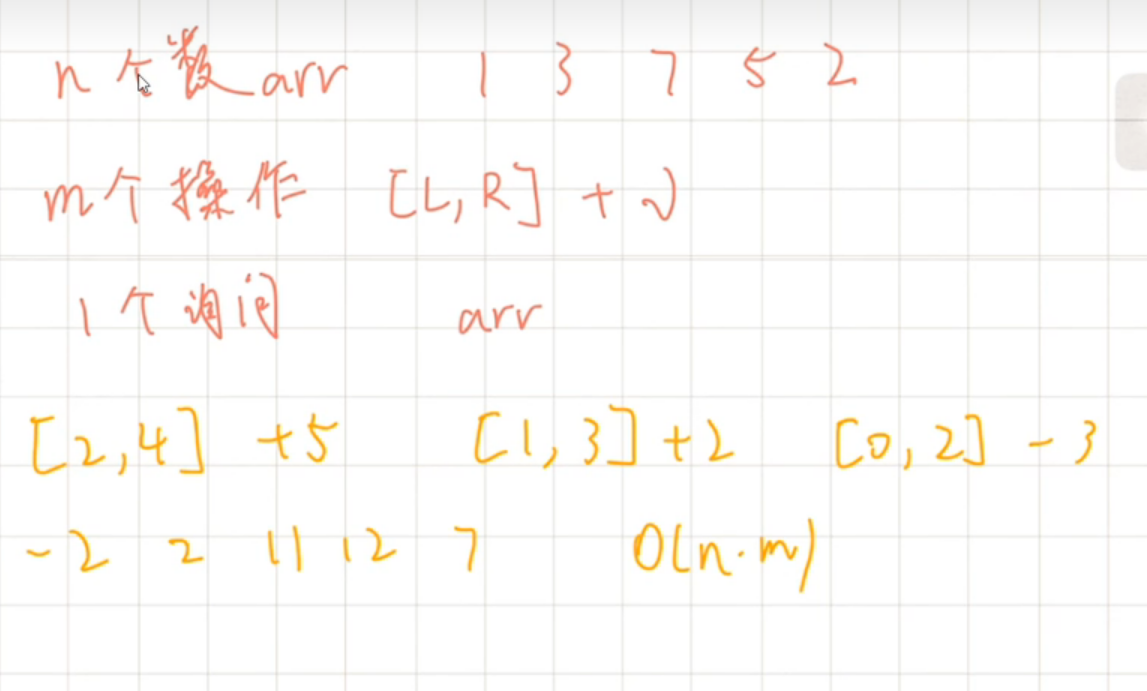 n个数 arr 1 3 7 5 2
m个操作 [L,R] + v
1个询问 arr
[2,4] +5 [1,3]+2 [0,2] -3
-2 2 11 12 7 O(n·m)